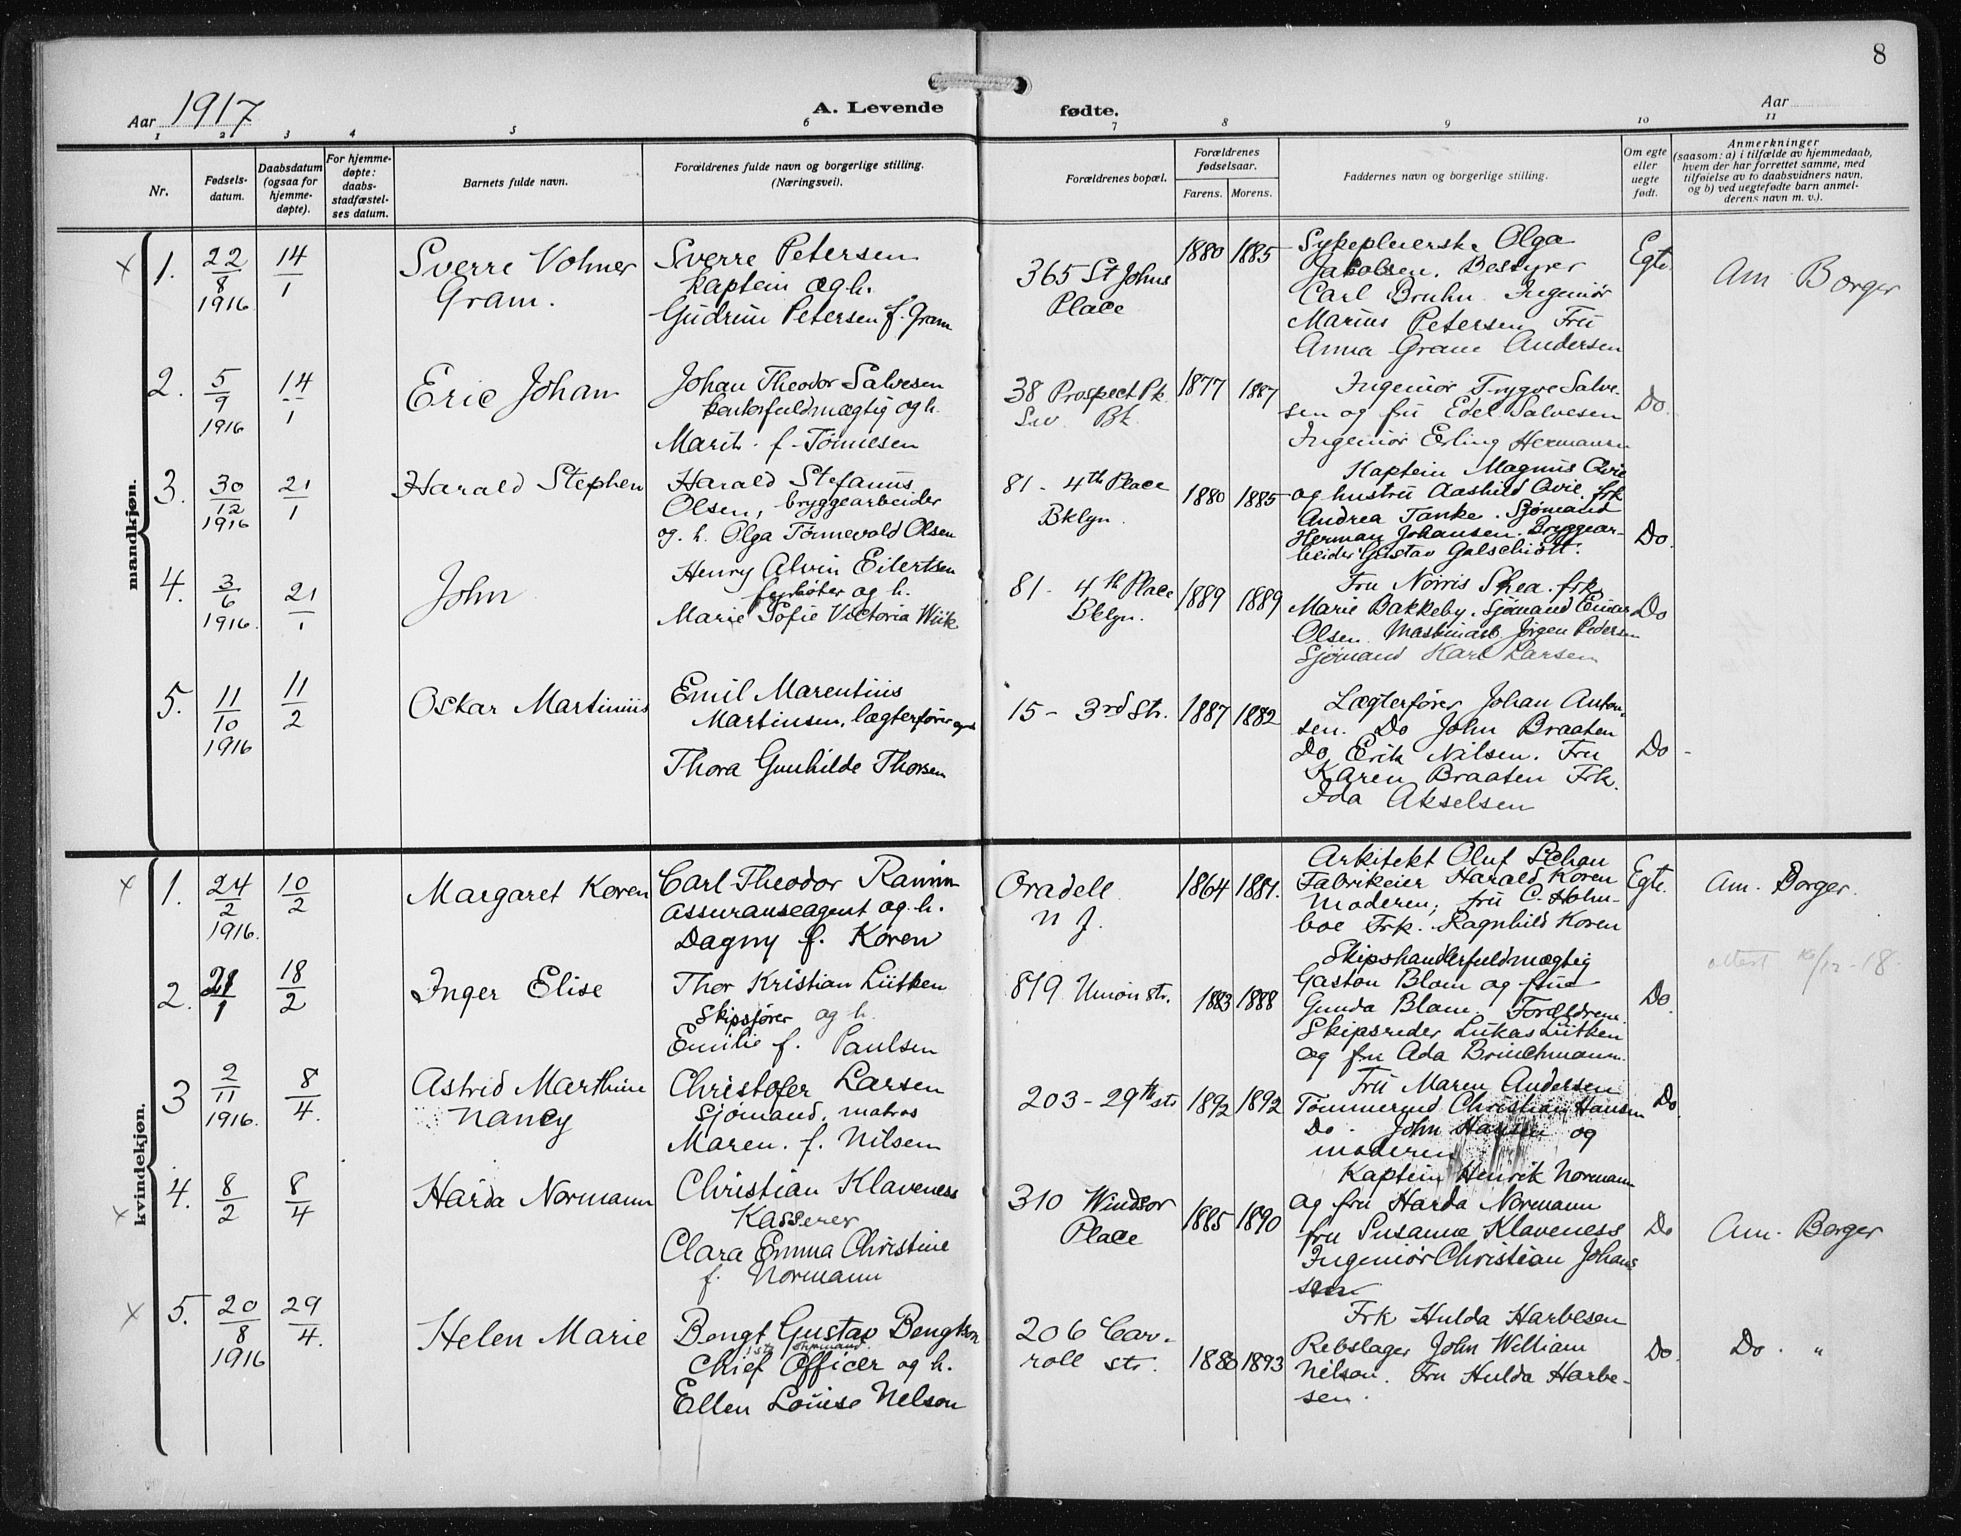 8
Aar 1917
A. Levende
fødte.
Aar
1 2 3 4 5 6 7 8 9 10 11
Nr.
Fødsels-
datum.
Daabsdatum
(ogsaa for
hjemme-
døpte).
For hjemme-
døpte:
daabs-
stadfæstel-
ses datum.
Barnets fulde navn.
Forældrenes fulde navn og borgerlige stilling.
(Næringsvei).
Forældrenes bopæl.
Forældrenes
fødselsaar.
Farens. Morens.
Faddernes navn og borgerlige stilling.
Om egte
eller
uegte
født.
Anmerkninger
(saasom: a) i tilfælde av hjemmedaab,
hvem der har forrettet samme, med
tilføielse av to daabsvidners navn,
og b) ved uegtefødte barn anmel-
derens navn m. v.).
mandkjøn.
x 1.
22/8
1916
14/1
Sverre Volmer
Gram.
Sverre Petersen
kaptein og h.
Gudrun Petersen f. Gram
365 St Johns
Place
1880 1885
Sykepleierske Olga
Jakobsen. Bestyrer
Carl Bruhn. Ingeniør
Marius Petersen Fru
Anna Gram Andersen
Egte.
Am Borger
2.
5/9
1916
14/1
Eric Johan
Johan Theodor Salvesen
kontorfuldmægtig og h.
Marit. f. Tønnesen
38 Prospect Pk
Bk.
1877 1887
Ingeniør Trygve Salve-
sen og fru Edel Salvesen
Ingeniør Erling Hermansen
Do.
3.
30/12
1916
21/1
Harald Stephen
Harald Stefanus
Olsen, bryggearbeider
og. h. Olga Tønnevold Olsen
81 - 4th Place
Bklyn.
1880 1885
Kaptein Magnus Qvie
og hustru Aashild Qvie. frk
Andrea Tanke. Sjømand
Herman Johansen. Bryggear-
beider Gustav Galschiøtt.
Do.
4.
3/6
1916.
21/1
John
Henry Alvin Eilertsen
fyrbøter og h.
Marie Sofie Victoria Wiik
81 - 4th Place
Bklyn.
1889 1889
Fru Norris Shea. frk.
Marie Bakkeby. Sjømand Einar
Olsen. Maskinarb. Jørgen Pedersen
Sjømand Karl Larsen
Do
5.
11/10
1916
11/2
Oskar Martinius
Emil Marentius
Martinsen, lægterfører og h
Thora Gunhilde Thorsen
15 - 3rd Str.
1887 1882
Lægterfører Johan Anton-
sen. Do John Braaten
Do Erik Nilsen. Fru
Karen Braaten Frk.
Ida Akselsen
Do -
kvindekjøn.
x 1.
24/2
1916.
10/2
Margaret Koren
Carl Theodor Ramm
Assuranseagent og. h.
Dagny f. Koren
Oradell
N J.
1864 1881.
Arkitekt Oluf Schou
Fabrikeier Harald Koren
Moderen, fru C. Holm-
boe Frk. Ragnhild Koren
Egte.
Am. Borger.
2.
21/1
18/2
Inger Elise
Thor Kristian Lütken
Skipsfører og h.
Emilie f. Paulsen
819 Union str.
1883 1888
Skipshandlerfuldmægtig
Gaston Blom og frue
Gunda Blom. Forældrene
Skipsreder Lukas Lütken
og fru Ada Brinchmann.
Do.
attest 16/12-18.
3
2/11
1916.
8/4.
Astrid Marthine
Nancy
Christofer Larsen
Sjømand, matros
Maren. f. Nilsen
203 - 29th str
1892 1892
Fru Maren Andersen
Tømmermd Christian Hansen
Do. John Hansen og
moderen
Do.
x 4.
8/2
8/4
Harda Normann
Christian Klaveness
Kasserer
Clara Emma Christine
f. Normann
310 Windsor
Place
1885 1890
Kaptein Henrik Normann
og fru Harda Normann
fru Susanne Klaveness
Ingeniør Christian Johans
sen
Do
Am. Borger
x 5.
20/8
1916
29/4.
Helen Marie
Bengt Gustav Bengtson
1ste Styrmand
Chief Officer og h.
Ellen Louise Nelson
206 Car-
roll str.
1886 1893
Frk Hulda Harbesen
Rebslager John William
Nilson. Fru Hulda Harbe-
sen.
Do.
Do. "